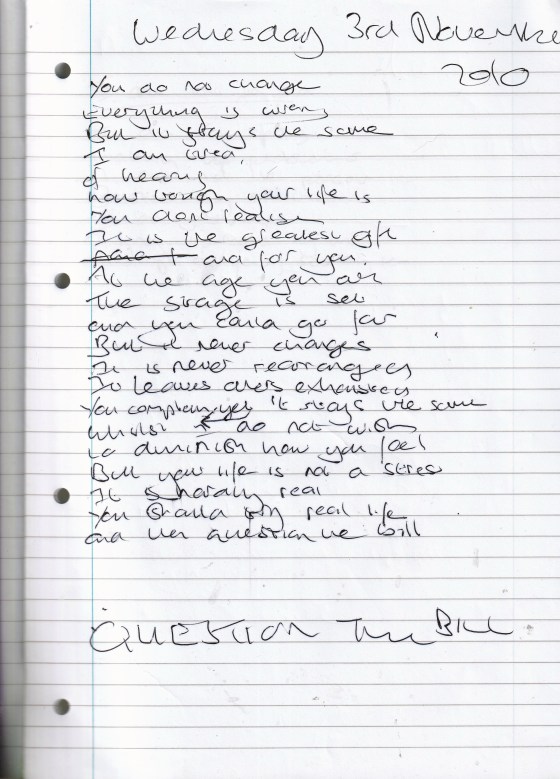 Wednesday 3rd November
2010
You do not change
Everything is wrong
But it stays the same
I am tired,
of hearing
how tough your life is
You dont realise
It is the greatest gift
and for you.
At the age you are
The stage is set
and you could go far
But it never changes
It is never rearranged
It leaves others exhausted
You complain, yet it stays the same
whilst I do not wish
to diminish how you feel
But your life is not a stress
It is hardly real
You should try real life
and then question the will
QUESTION THE BILL